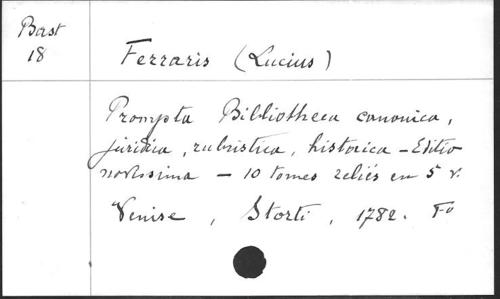 Bast
18
Ferraris (Lucius)
Prompta Bibliotheca canonica,
juridica, rubristica, historica - Editio
novissima - 10 tomes reliés en 5 v.
Venise, Storti, 1782. Fº